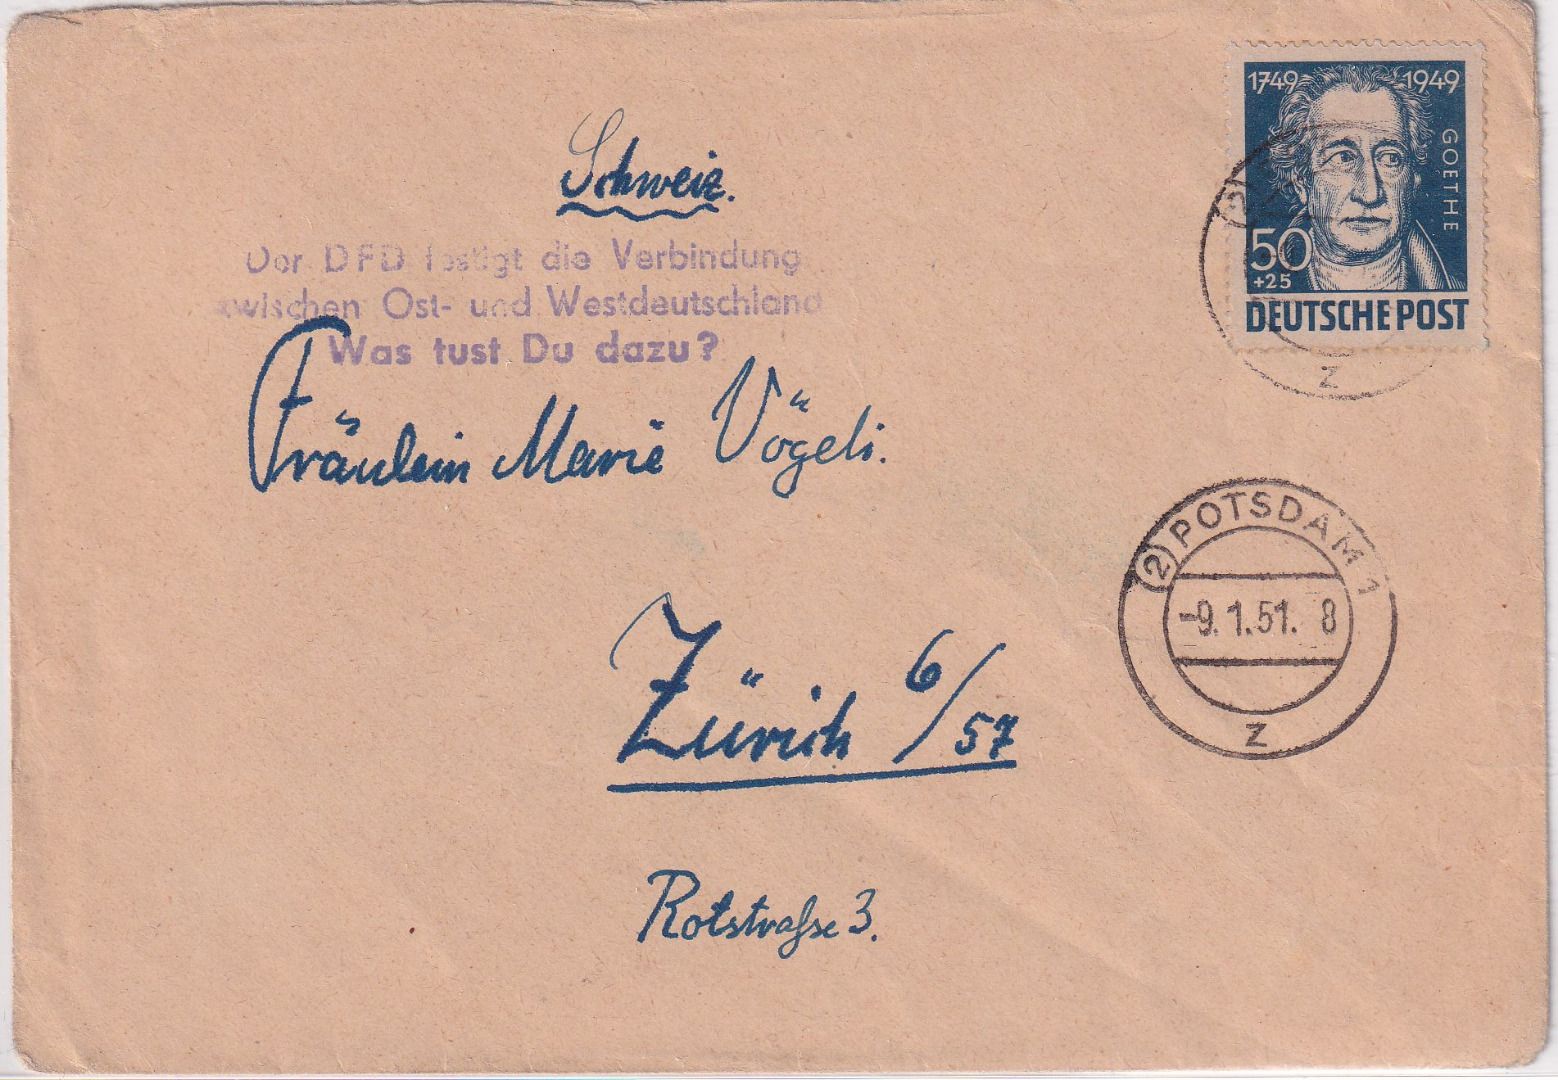 1749 1949
GOETHE
50
+25
DEUTSCHE POST
Schweiz.
Der DFD festigt die Verbindung
zwischen Ost- und Westdeutschland
Was tust Du dazu?
Fräulein Marie Vögeli.
(2) POTSDAM 1
-9.1.51. 8
z
Zürich 6/57
Rotstraße 3.
(2)
z